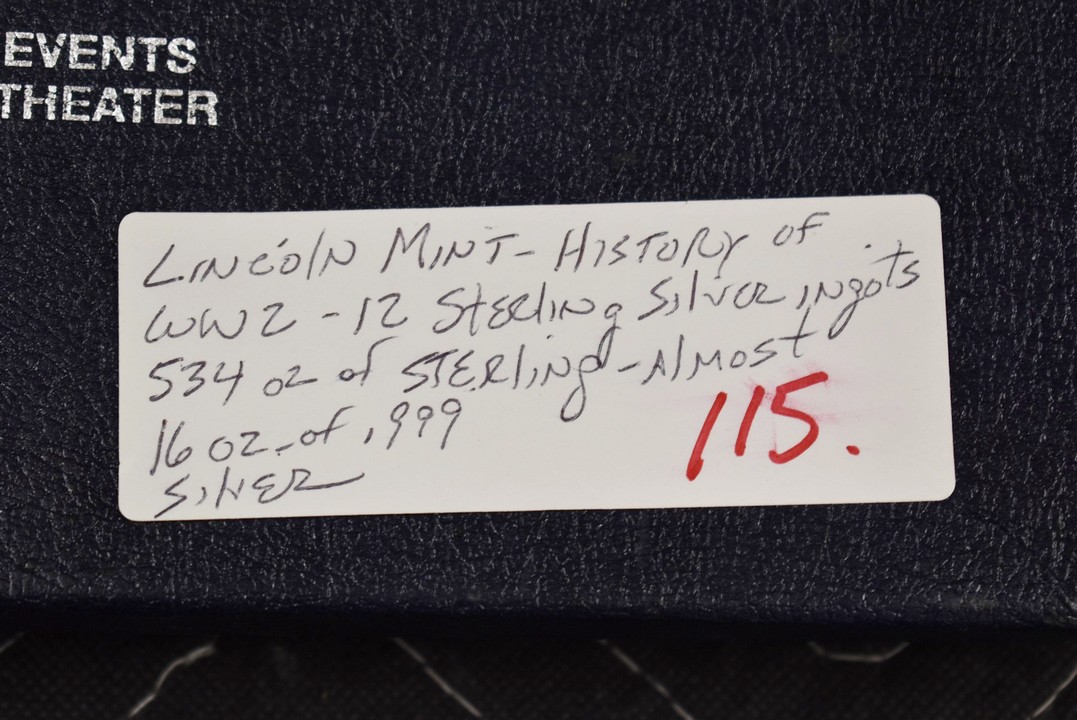 EVENTS
THEATER
LINCOLN MINT - HISTORY of
WW2 - 12 STERLING SILVER INGOTS
534 oz of STERLING - ALMOST
16 oz. of .999
SILVER
115.